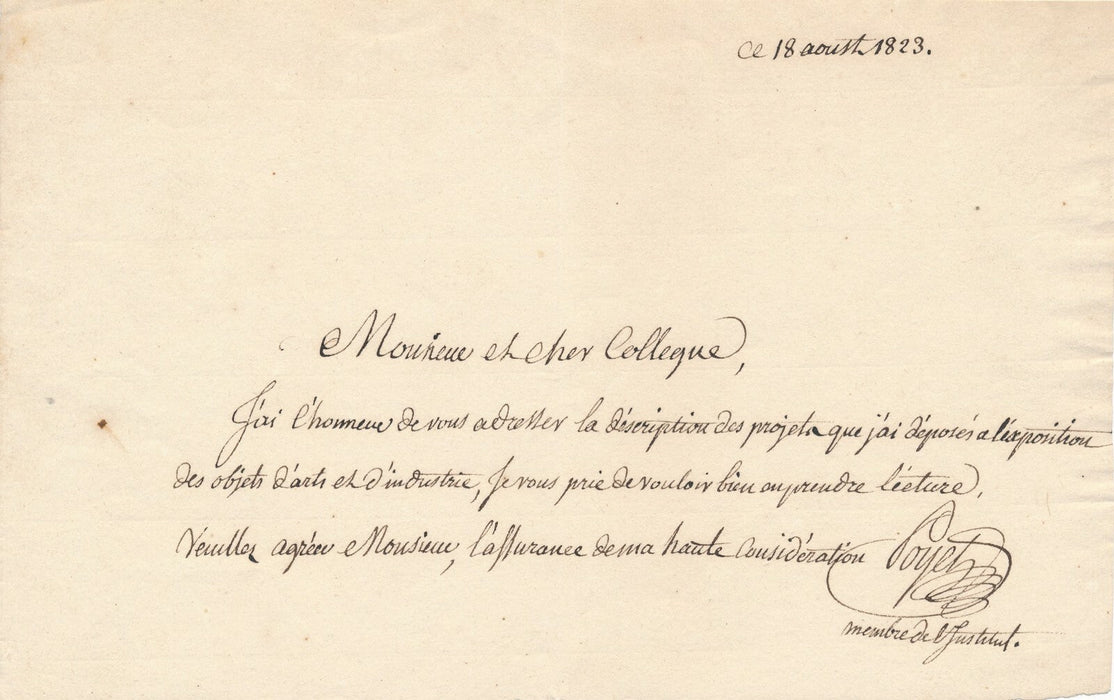 Ce 18 aoust 1823.
Monsieur et cher Collegue,
J'ai l'honneur de vous adresser la déscription des projets que j'ai déposés a l'éxposition
des objets d'arts et d'industrie, Je vous prie de vouloir bien en prendre lécture.
Véuillez agréer Monsieur, l'assurance de ma haute Considération Poyet
membre de l'Institut.